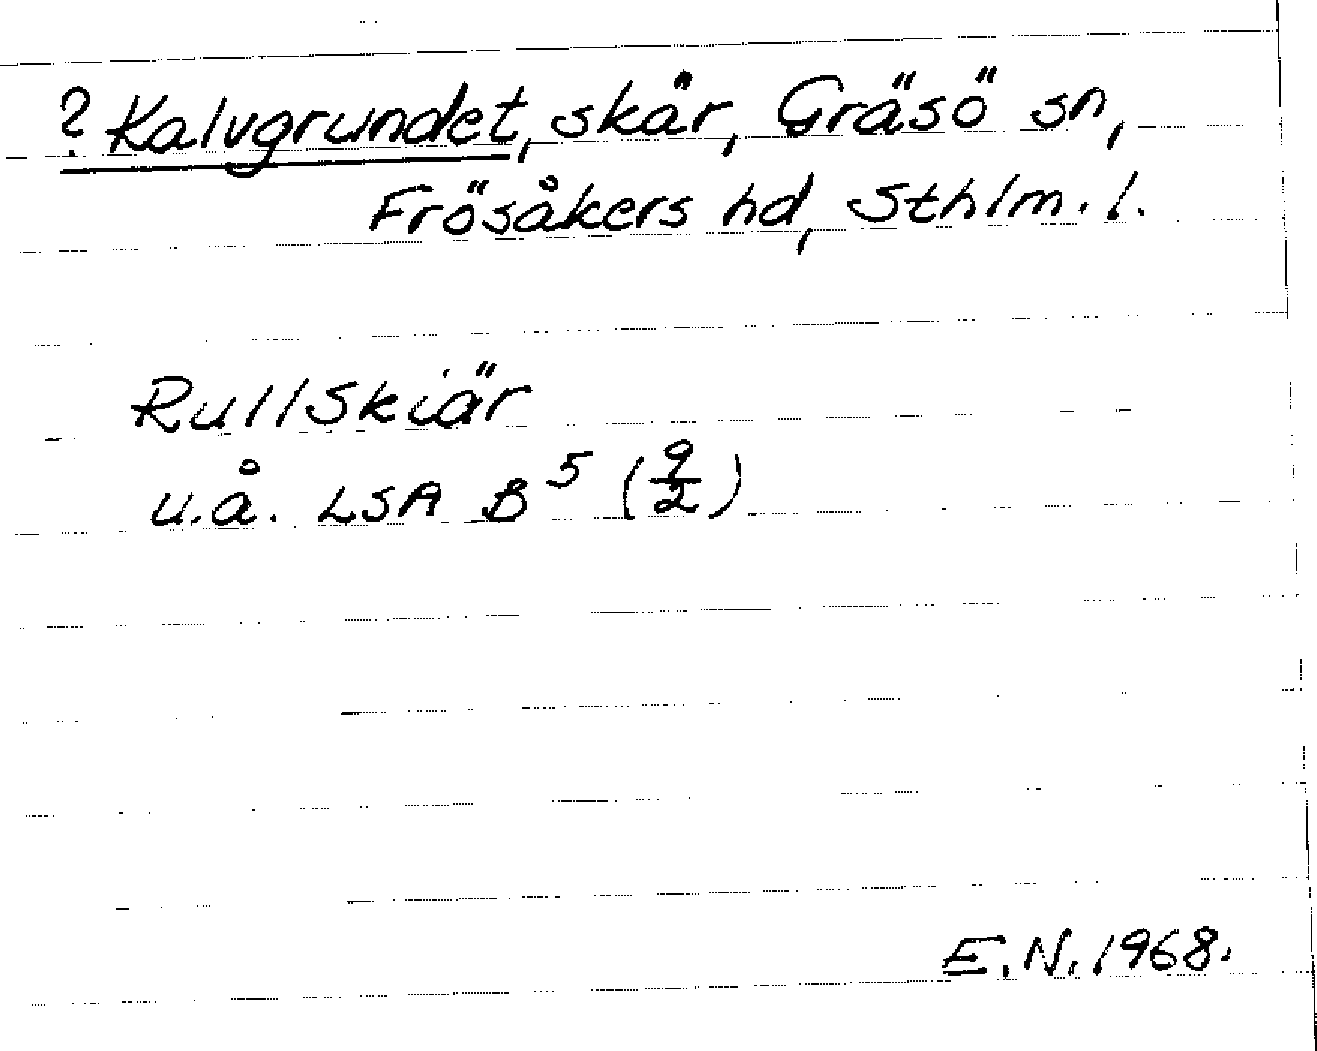 ? Kalvgrundet, skär, Gräsö sn,
Frösåkers hd, Sthlm. l.
Rullskiär
u.å. LSA B⁵ (9/2)
E.N. 1968.